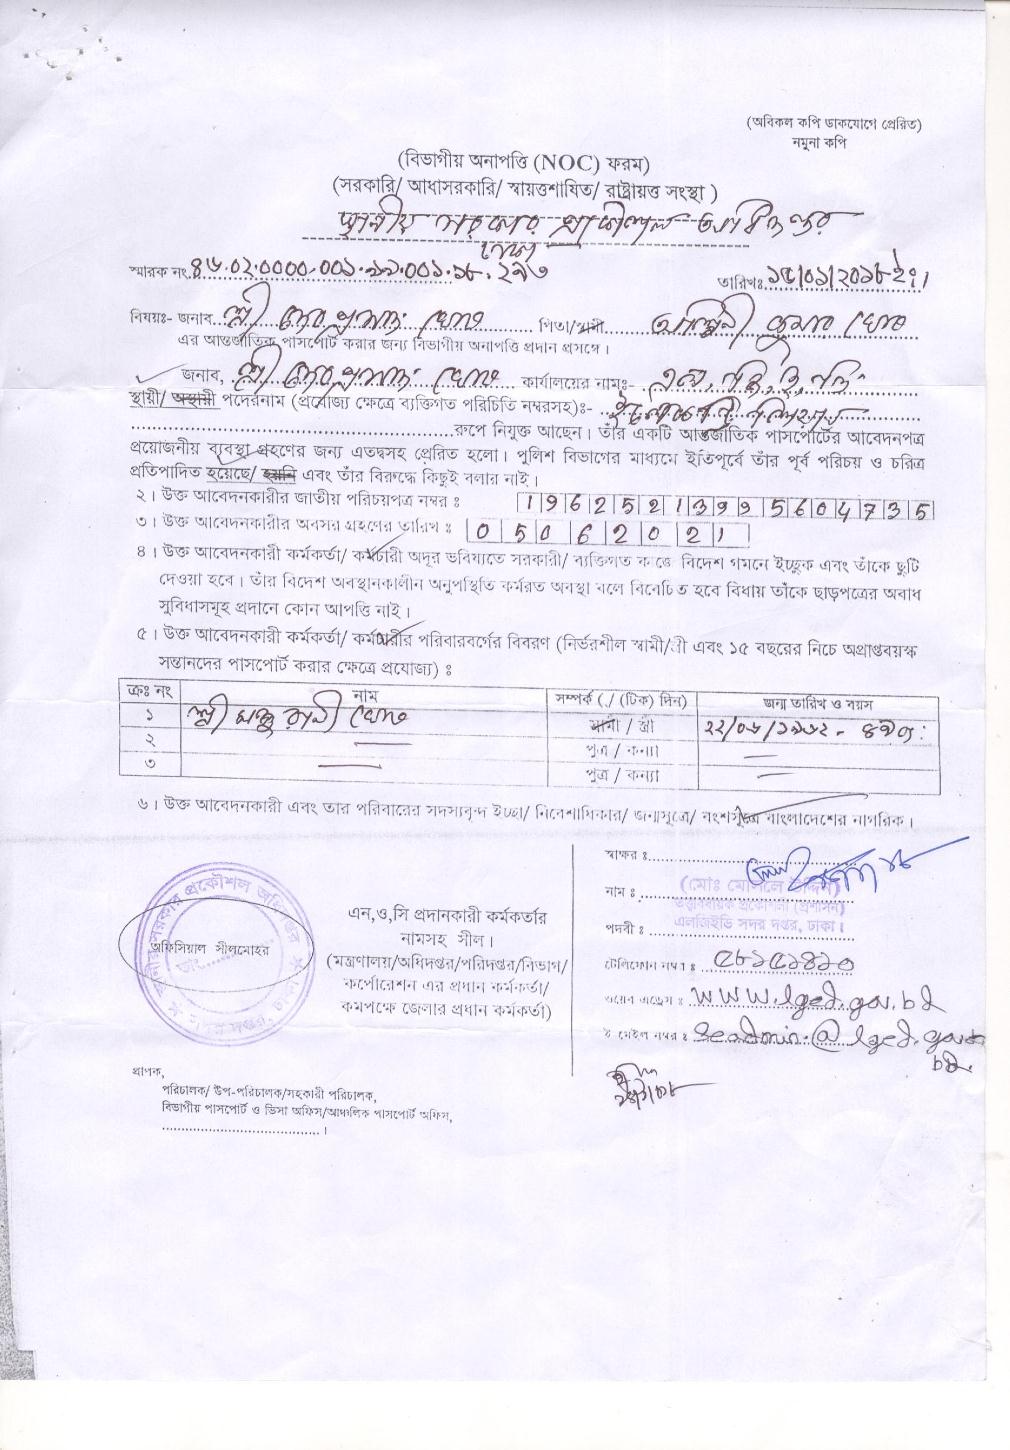 (অবিকল কপি ডাকযোগে প্রেরিত)
নমুনা কপি
(বিভাগীয় অনাপত্তি (NOC) ফরম)
(সরকারি/ আধাসরকারি/ স্বায়ত্তশাষিত/ রাষ্ট্রায়ত্ত সংস্থা )
স্থানীয় সরকার প্রকৌশল অধিদপ্তর
স্মারক নং- ৪৬.০২.০০০০.০০১.১১.০০১.১৮.২৯৩ তারিখঃ ১৫/০১/২০১৮ ইং।
বিষয়ঃ- জনাব শ্রী দেব প্রসাদ ঘোষ পিতা/স্বামী অশ্বিনী কুমার ঘোষ
এর আন্তর্জাতিক পাসপোর্ট করার জন্য বিভাগীয় অনাপত্তি প্রদান প্রসঙ্গে।
জনাব, শ্রী দেব প্রসাদ ঘোষ কার্যালয়ের নামঃ- এল, জি, ই, ডি
স্থায়ী/ অস্থায়ী পদেরনাম (প্রযোজ্য ক্ষেত্রে ব্যক্তিগত পরিচিতি নম্বরসহ)ঃ-
রুপে নিযুক্ত আছেন। তাঁর একটি আন্তর্জাতিক পাসপোর্টের আবেদনপত্র
প্রয়োজনীয় ব্যবস্থা গ্রহণের জন্য এতদ্বসহ প্রেরিত হলো। পুলিশ বিভাগের মাধ্যমে ইতিপূর্বে তাঁর পূর্ব পরিচয় ও চরিত্র
প্রতিপাদিত হয়েছে/ হয়নি এবং তাঁর বিরুদ্ধে কিছুই বলার নাই।
২। উক্ত আবেদনকারীর জাতীয় পরিচয়পত্র নম্বর ঃ 19625213995604735
৩। উক্ত আবেদনকারীর অবসর গ্রহণের তারিখ ঃ 05062021
৪। উক্ত আবেদনকারী কর্মকর্তা/ কর্মচারী অদূর ভবিষ্যতে সরকারী/ ব্যক্তিগত কাজে বিদেশ গমনে ইচ্ছুক এবং তাঁকে ছুটি
দেওয়া হবে। তাঁর বিদেশ অবস্থানকালীন অনুপস্থিতি কর্মরত অবস্থা বলে বিবেচিত হবে বিধায় তাঁকে ছাড়পত্রের অবাধ
সুবিধাসমূহ প্রদানে কোন আপত্তি নাই।
৫। উক্ত আবেদনকারী কর্মকর্তা/ কর্মচারীর পরিবারবর্গের বিবরণ (নির্ভরশীল স্বামী/স্ত্রী এবং ১৫ বছরের নিচে অপ্রাপ্তবয়স্ক
সন্তানদের পাসপোর্ট করার ক্ষেত্রে প্রযোজ্য) ঃ
ক্রঃ নং নাম সম্পর্ক (√ (টিক) দিন) জন্ম তারিখ ও বয়স
১ শ্রী মঞ্জু রানী ঘোষ স্বামী / স্ত্রী
২ পুত্র / কন্যা
৩ পুত্র / কন্যা
৬। উক্ত আবেদনকারী এবং তার পরিবারের সদস্যবৃন্দ ইচ্ছা/ নিবেশাধিকার/ জন্মসূত্রে/ বংশসূত্রে বাংলাদেশের নাগরিক।
অফিসিয়াল সীলমোহর
এন,ও,সি প্রদানকারী কর্মকর্তার
নামসহ সীল।
(মন্ত্রণালয়/অধিদপ্তর/পরিদপ্তর/বিভাগ/
কর্পোরেশন এর প্রধান কর্মকর্তা/
কমপক্ষে জেলার প্রধান কর্মকর্তা)
স্বাক্ষর ঃ
নাম ঃ (মোঃ মোসলে উদ্দিন)
তত্ত্বাবধায়ক প্রকৌশলী (প্রশাসন)
পদবী ঃ এলজিইডি সদর দপ্তর, ঢাকা।
টেলিফোন নম্বর ঃ
ওয়েব এড্রেস ঃ www.lged.gov.bd
ই মেইল নম্বর ঃ seadmin@lged.gov.bd
প্রাপক,
পরিচালক/ উপ-পরিচালক/সহকারী পরিচালক,
বিভাগীয় পাসপোর্ট ও ভিসা অফিস/আঞ্চলিক পাসপোর্ট অফিস,